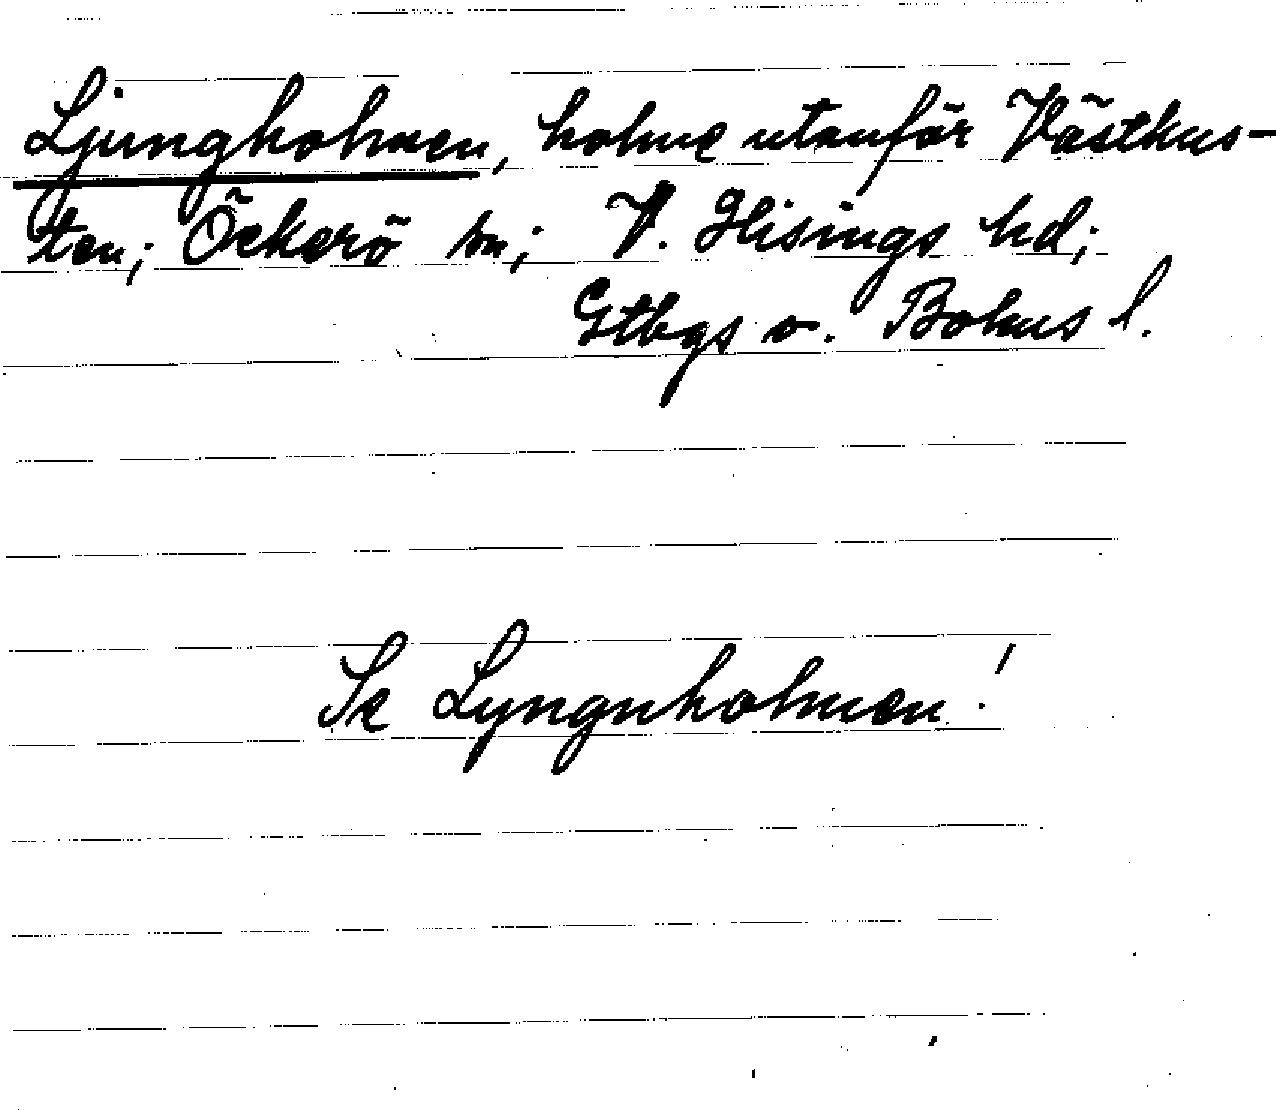 Ljungholmen, holme utanför Västkus-
ten; Öckerö sn; V. Hisings hd;
Gtbgs o. Bohus l.
Se Lyngnholmen!